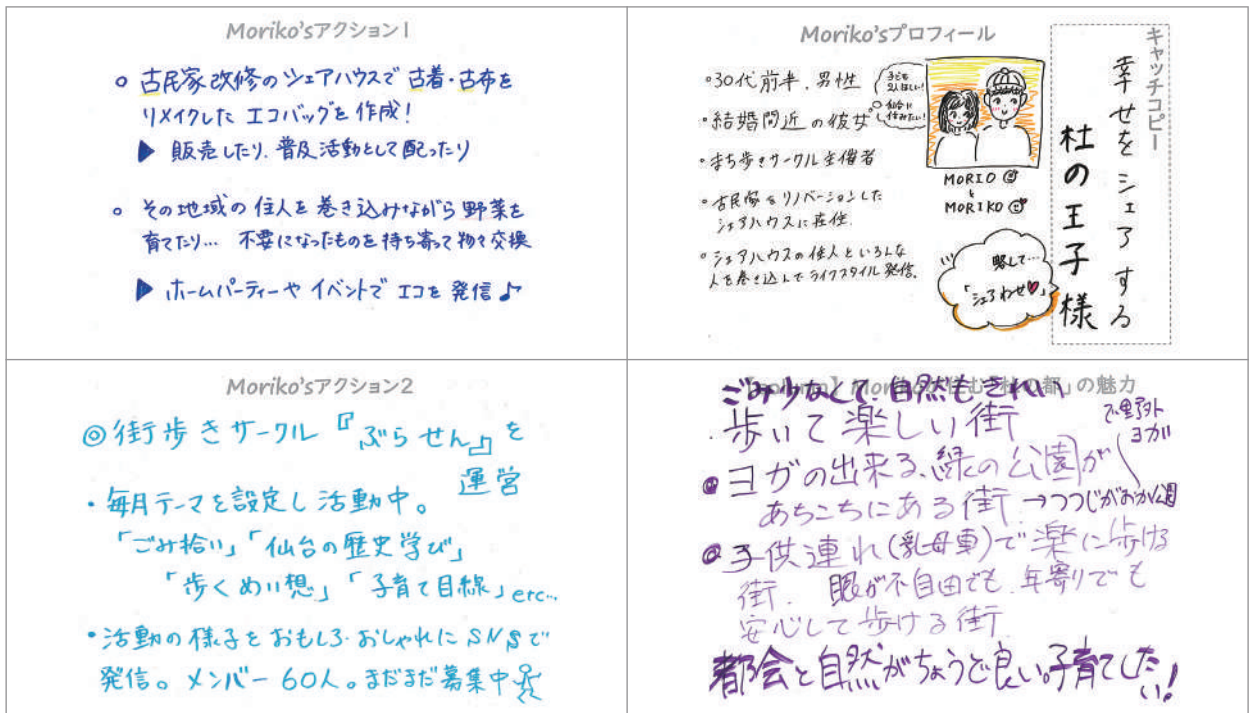 Moriko'sアクション1
○ 古民家改修のシェアハウスで古着・古布を
リメイクした エコバッグを 作成!
▶ 販売したり、普及活動として配ったり
○ その地域の住人を巻き込みながら野菜を
育てたり… 不要になったものを持ち寄って物々交換
▶ ホームパーティーや イベントで エコを 発信♪
Moriko'sプロフィール
・30代前半、男性
・結婚間近の彼女
・まち歩きサークル主催者
・古民家をリノベーションした
シェアハウスに在住
・シェアハウスの住人といろんな
人を巻き込んでライフスタイル発信。
子ども
2人ほしい!
仙台に
住みたい!
MORIO
&
MORIKO
略して…
「シェアわせ♥」
キャッチコピー
幸せをシェアする
杜の王子様
Moriko'sアクション2
◎街歩きサークル『ぶらせん』を
運営
・毎月テーマを設定し活動中。
「ごみ拾い」「仙台の歴史学び」
「歩くめい想」「子育て目線」etc…
・活動の様子をおもしろおしゃれにSNSで
発信。メンバー60人。まだまだ募集中
む「杜の都」の魅力
ごみ少なくて、自然もきれい
・歩いて楽しい街
で野外
ヨガ!!
・ヨガの出来る、緑の公園が
あちこちにある街 →つつじがおか公園
・子供連れ(乳母車)で楽に歩ける
街. 眼が不自由でも、年寄りでも
安心して歩ける街
都会と自然がちょうど良い。子育てしたい!